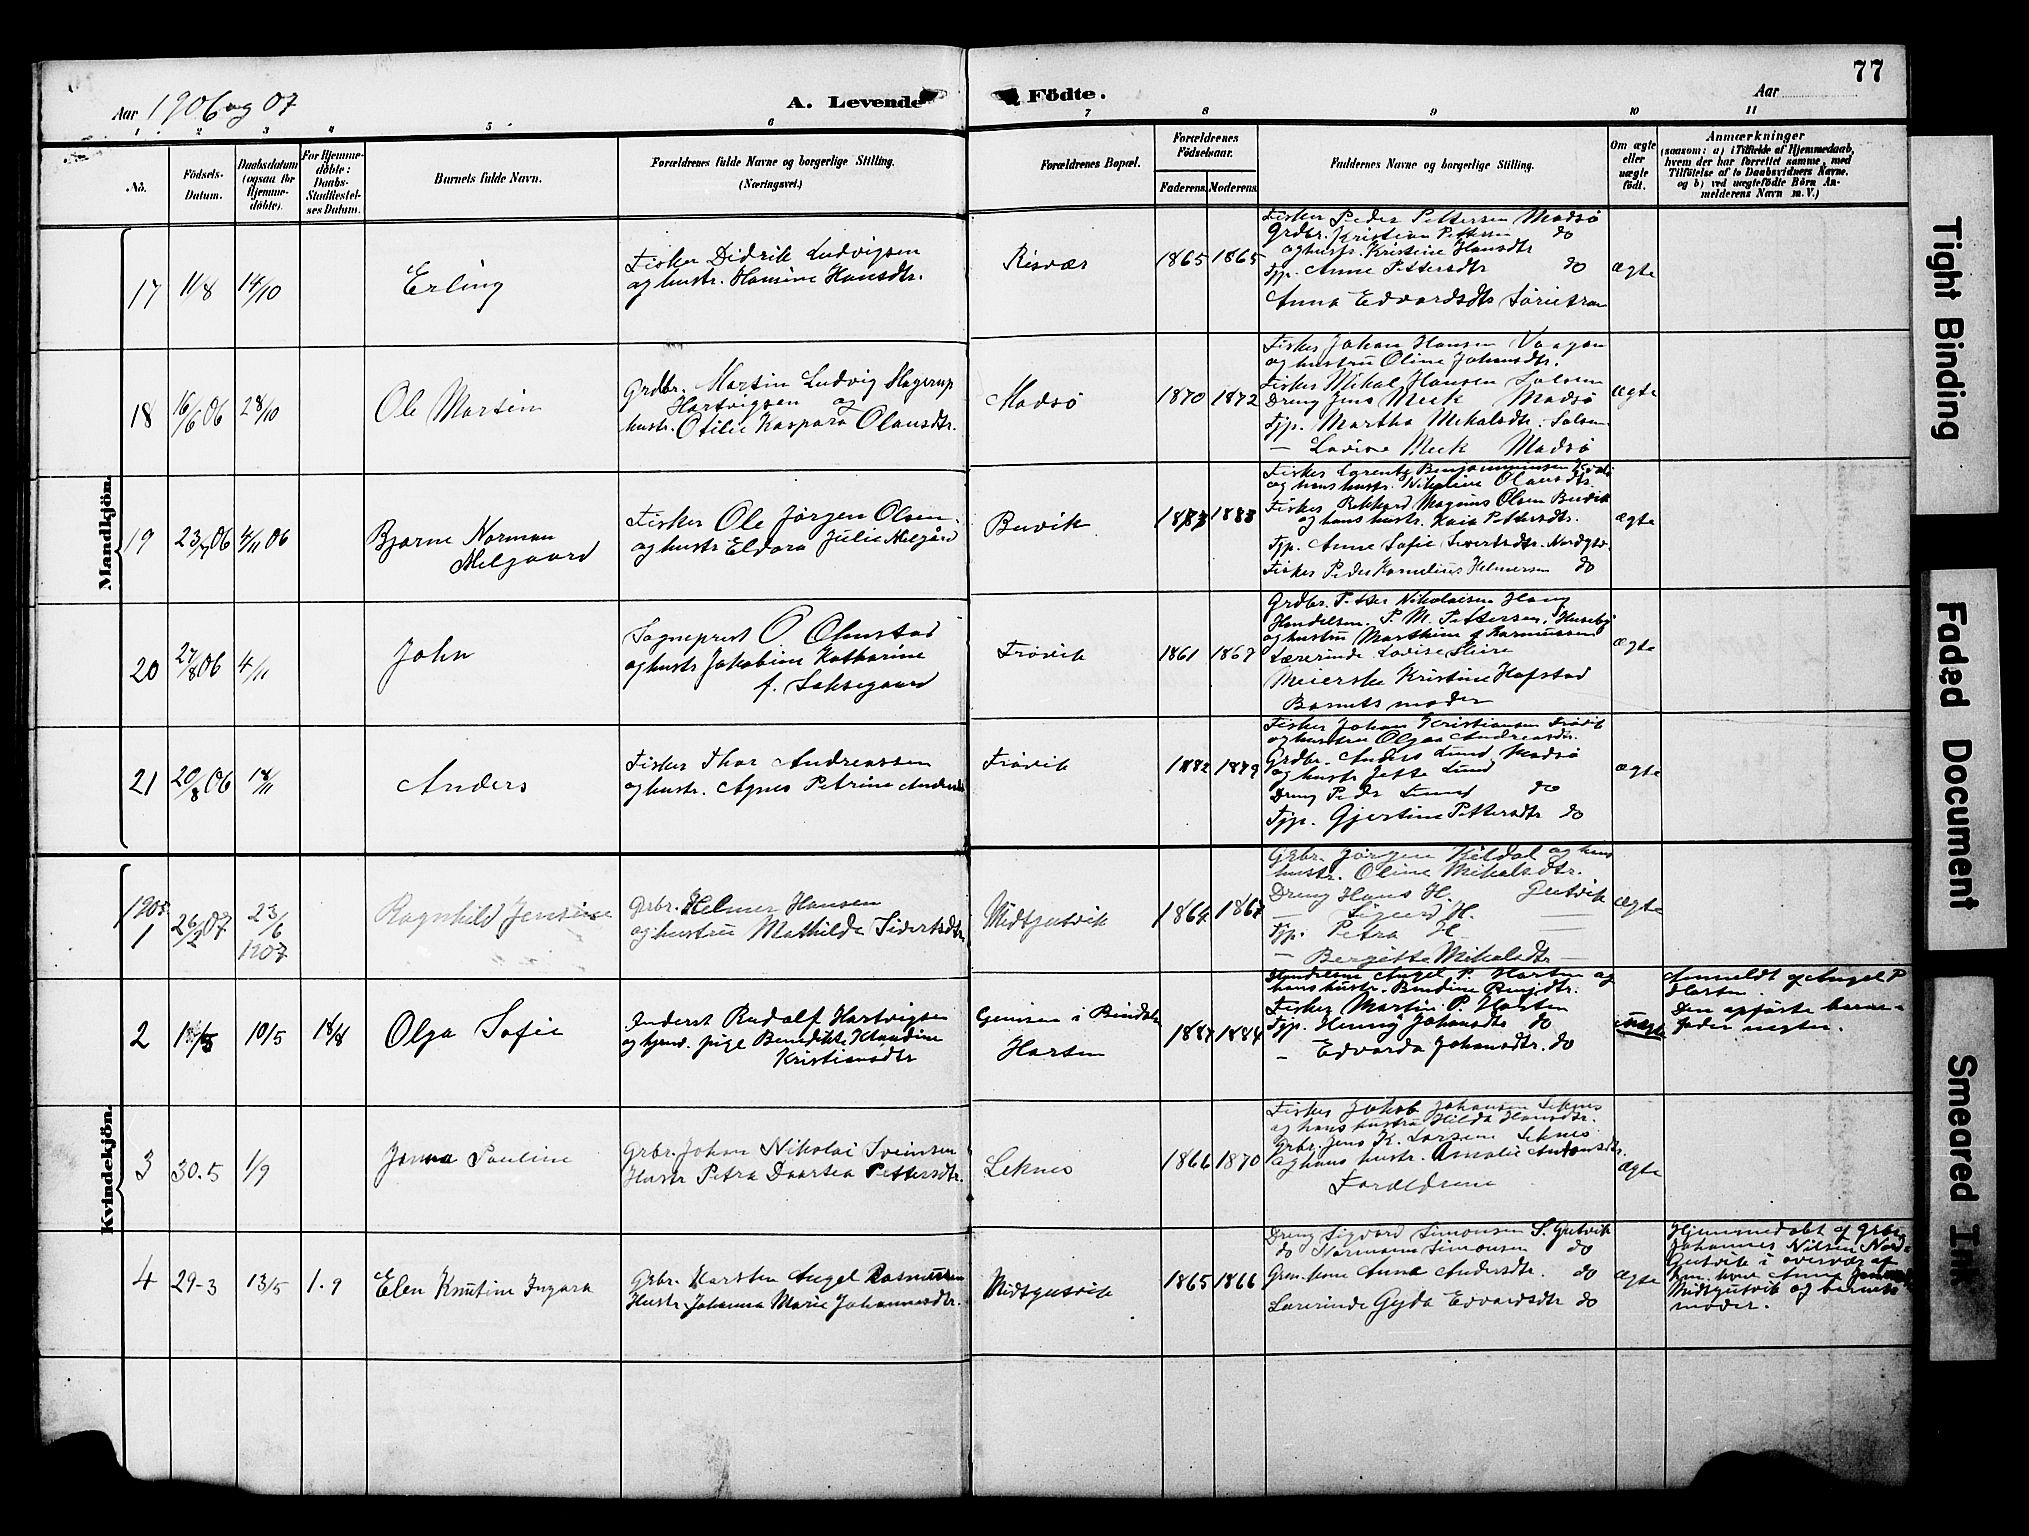 77
Aar 1906 og 07
A. Levende Födte.
Aar
1 2 3 4 5 6 7 8 9 10 11
No.
Födsels-Datum.
Daabsdatum (ogsaa for Hjemme-döbte).
For Hjemme-döbte: Daabs-Stadfæstel-ses Datum.
Barnets fulde Navn.
Forældrenes fulde Navne og borgerlige Stilling.
(Næringsvei.)
Forældrenes Bopæl.
Forældrenes Födselsaar.
Faderens. Moderens.
Faddernes Navne og borgerlige Stilling.
Om ægte eller uægte födt.
Anmærkninger
(saasom: a) i Tilfælde af Hjemmedaab, hvem der har forrettet samme, med Tilföielse af to Daabsvidners Navne, og b) ved uægtefödte Börn An-melderens Navn m. V.)
Mandkjön.
17 11/8 14/10 Erling
Fisker Didrik Ludvigsen
og hustr. Hansine Hansdtr.
Risvær 1865 1865
Fisker Peder Pettersen Madsö
Grdbr. Kristian Pettersen do
og hustr. Kristine Hansdtr
Pp. Anne Pettersdtr do
Anna Edvardsdtr
ægte
18 16/6 06 28/10 Ole Martin
Grdbr. Martin Ludvig Hagerup
Hartvigsen og
hustr. Otilie Kaspara Olausdtr.
Madsö 1870 1872
Fisker Johan Hansen Vaagan
og hustru Oline Johansdtr.
Fisker Mikal Hansen Salsen
Dreng Jens Meek Madsö
Pp. Martha Mikalsdtr. Salsen
— Lovise Meek Madsö
ægte
19 23/7 06 4/11 06 Bjarne Norman
Melgaard
Fisker Ole Jörgen Olsen
og hustr Eldora Julie Melgård
Buvik 1883 1888
Fisker Lorents Benjaminsen
og hans hustr. Nikoline Olausdtr.
Fisker Rikhard Magnus Olsen Buvik
og hans hustr. Kaia Pettersdtr.
Pp. Anne Sofie Sivertsdtr.
Fisker Peder Kornelius Helmersen do
ægte
20 27/8 06 4/11 John
Sogneprest O. Olmstad
og hustr Jakobine Katharine
f. Saksegaard
Frövik 1861 1867
Grdbr. Petter Nikolaisen Haug
Handelsm. P. M. Pettersen, Huseby
og hustru Marthine f. Rasmussen
Lærerinde Lovise
Meierske Kristine Hafstad
Barnets moder
ægte
21 20/8 06 18/11 Anders
Fisker Thor Andreassen
og hustr. Agnes Petrine
Frövik 1882 1879
Fisker Johan Kristiansen Frövik
og hustru Olgaa Andreasdtr.
Grdbr. Anders Lund Madsö
og hustr Jette Lund
Dreng Peder Lund do
Pp. Gjertine Pettersdtr do
ægte
Kvindekjön.
1905
1 26/2 07 23/6 1907 Ragnhild Jensine
Grbr. Helmer Hansen
og hustru Mathilde Sivertsdtr
Midtgutvik 1864 1867
Grbr. Jörgen Kjeldal og hans
hustr. Oline Mikalsdtr.
Dreng Hans H. Gutvik
— Sigurd H. —
Pp. Petra H. —
— Bergitte Mikalsdtr —
ægte
2 10/5 18/8 Olga Sofie
Underst Rudolf Hartvigsen
og tjend. pige Benedikte Klaudine
Kristiansdtr
Gimsen i Bindalen
Horsen
1887 1884
Handelsm Angel P. Horsen og
hans hustr. Bendine Benjdtr.
Fisker Martin P. Horsen
Pp. Henny Johansdtr do
— Edvarda Johansdtr. do
uægte
Anmeldt af Angel P
Horsen.
Den opförte barne-
fader negter.
3 30.5 1/9 Janna Pauline
Grbr. Johan Nikolai Sveinsen
Hustr Petra Daartea Pettersdtr.
Leknes 1866 1870
Fisker Jakob Johansen Leknes
og hans hustru Hilda Hansdtr.
Grbr. Jens K. Larsen Leknes
og hans hustr. Amalie Antonsdtr.
Forældrene
ægte
4 29-3 13/5 1.9 Elen Knutine Ingara
Grbr. Karsten Angel Rasmussen
Hustr Johanna Marie Johannesdtr.
Midtgutvik 1865 1866
Dreng Sigvard Simonsen S. Gutvik
do Normann Simonsen do
Grm. kone Anna Andersdtr. do
Lærerinde Gyda Edvardsdtr do
ægte
Hjemmedöbt af Grbr.
Johannes Nilsen Nord-
Gutvik i overvær af
Grm. kone Anna
Midtgutvik og barnets
moder.
Tight Binding
Faded Document
Smeared Ink